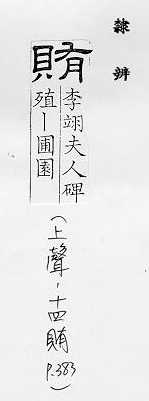 隸辨
賄
李翊夫人碑
殖丨圃園
(上聲、十四賄 P.383)